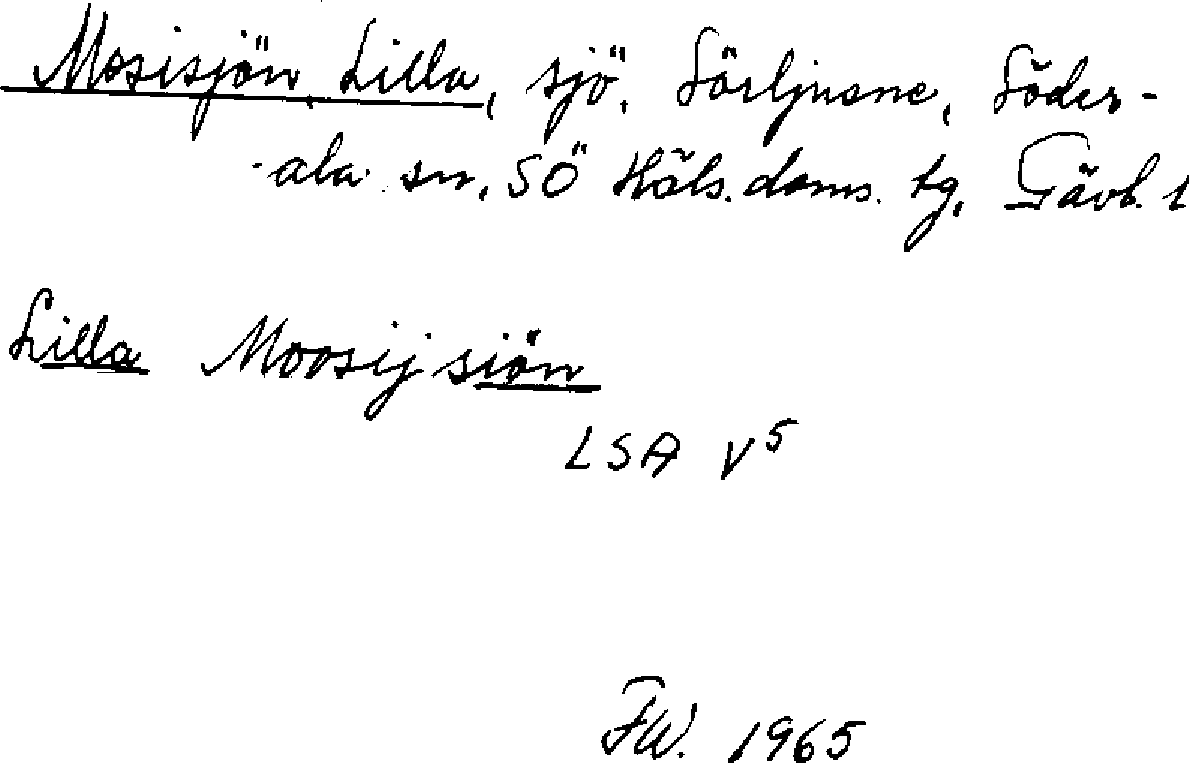 Mosisjön, Lilla, sjö, Sörljusne, Söder-
ala sn, SÖ Häls. doms. tg, Gävb. l
Lilla Moosijsiön
LSA V5
FW. 1965